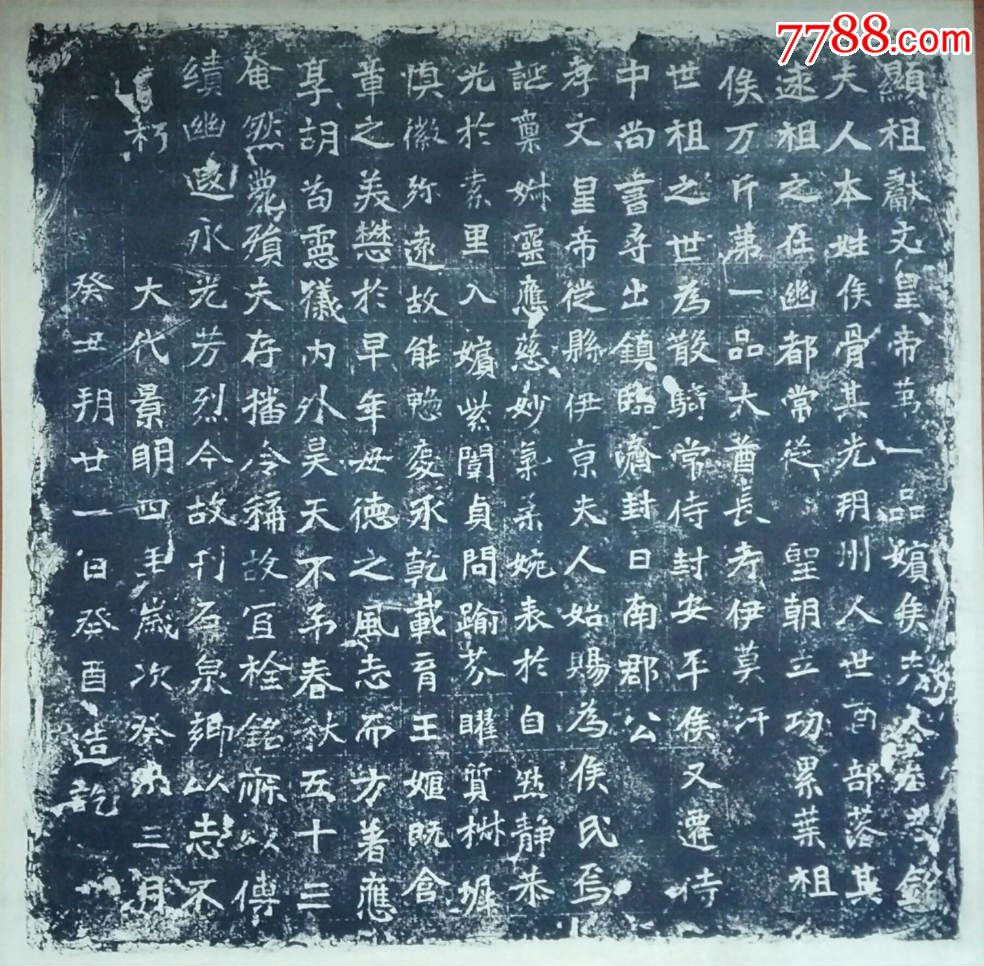 7788.com
顯祖獻文皇帝苐一品嬪侯夫人墓誌銘
夫人本姓侯骨其先朔州人世酋部落其
遠祖之在幽都常從聖朝立功累葉祖
侯万斤第一品大酋長考伊莫汗
世祖之世為散騎常侍封安平侯又遷侍
中尚書尋出鎮臨濟封日南郡公
孝文皇帝徙縣伊京夫人始賜為侯氏焉
誕稟姉靈應慈妙氣柔婉表於自然靜恭
光於素里入嬪紫闈貞問踰芬曜質椒墀
慎徽弥遠故能慶承乾載育王姬既含
章之美懋於早年母德之風志而方著應
享胡耇憑儀内外昊天不弔春秋五十三
奄然薨殞夫存播令稱故宜銘庶以傳
續幽遐永光芳烈今故刊石泉鄉以志不
朽大代景明四年歲次癸未三月
癸丑朔廿一日癸酉造訖